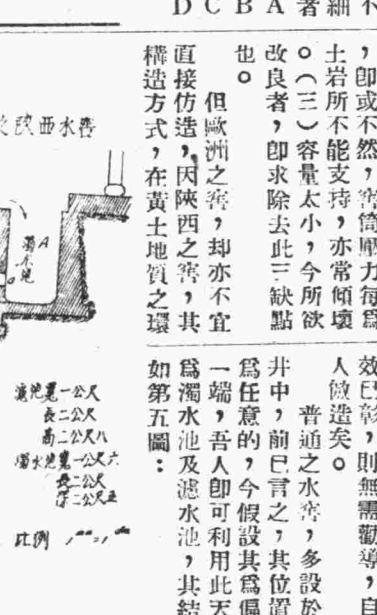 細
者
A
B
C
D
，卽或不然，窖筒壓力每爲
土岩所不能支持，亦常傾壞
。（三）容量太小，今所欲
改良者，卽求除去此三缺點
也。
但歐洲之窖，却亦不宜
直接仿造，因陝西之窖，其
構造方式，在黃土地質之環
效已彰，則無需勸導，自
人倣造矣。
普通之水窖，多設於
井中，前已言之，其位置
爲任意的，今假設其爲偏
一端，吾人卽可利用此天
爲濁水池及濾水池，其結
如第五圖：
陝西水窖
A
濁水池
濾池寬一公尺
長二公尺
高二公尺八
濁水池寬一公尺六
長二公尺
深二公尺五
比例